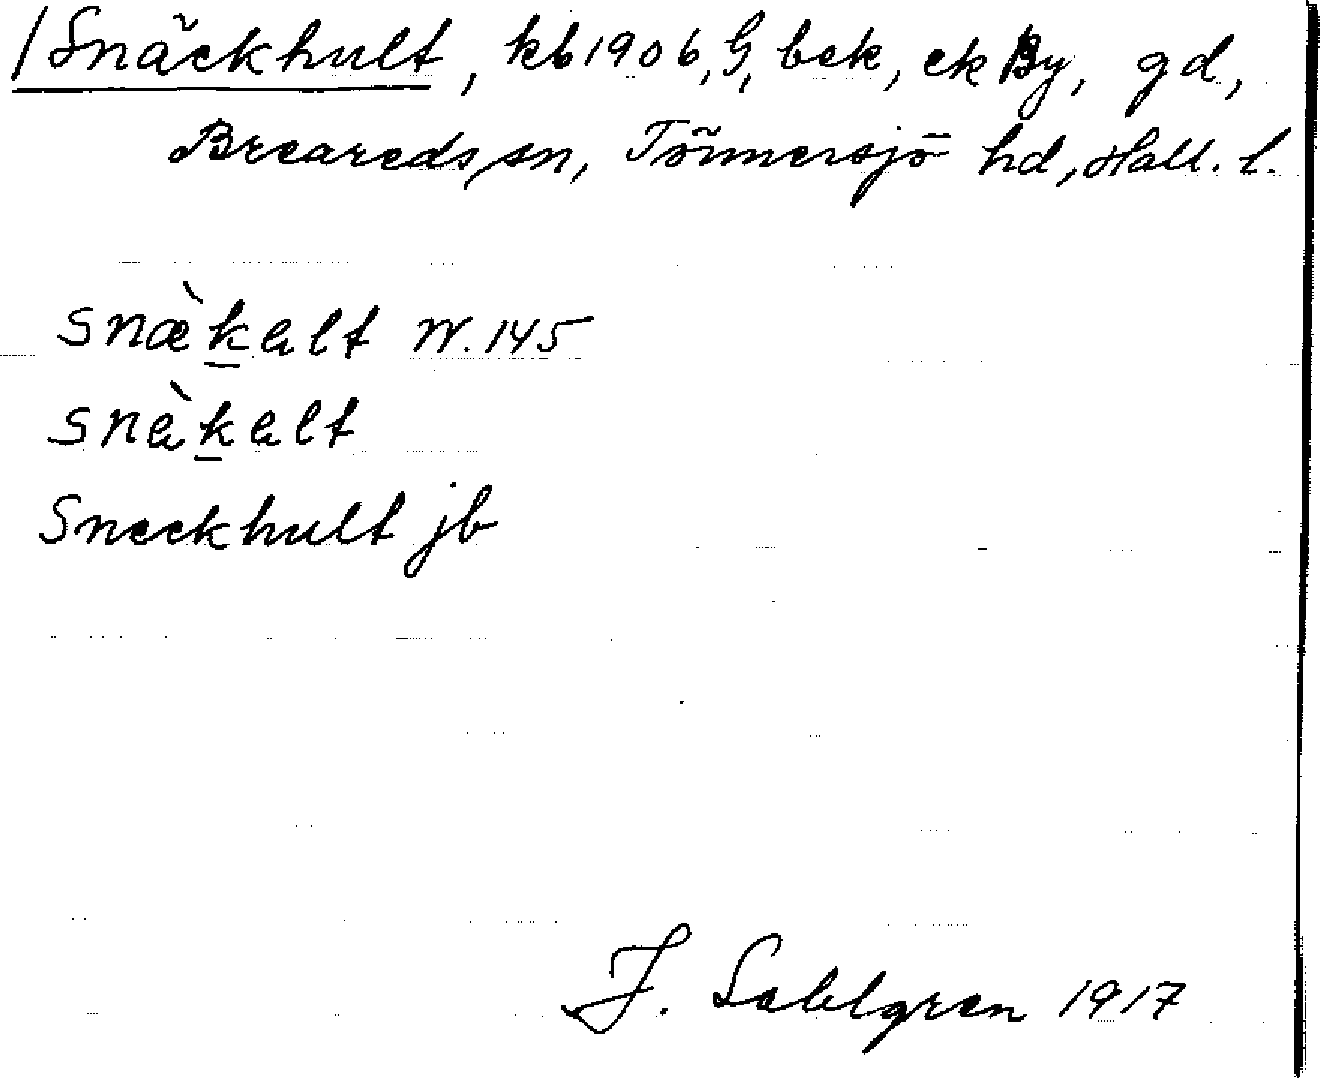 /Snäckhult, kb1906, G, bek, ek By, gd,
Breareds sn, Tönnersjö hd, Hall. l.
snæ̀kalt W. 145
snàkalt
Sneckhult jb
J. Sahlgren 1917